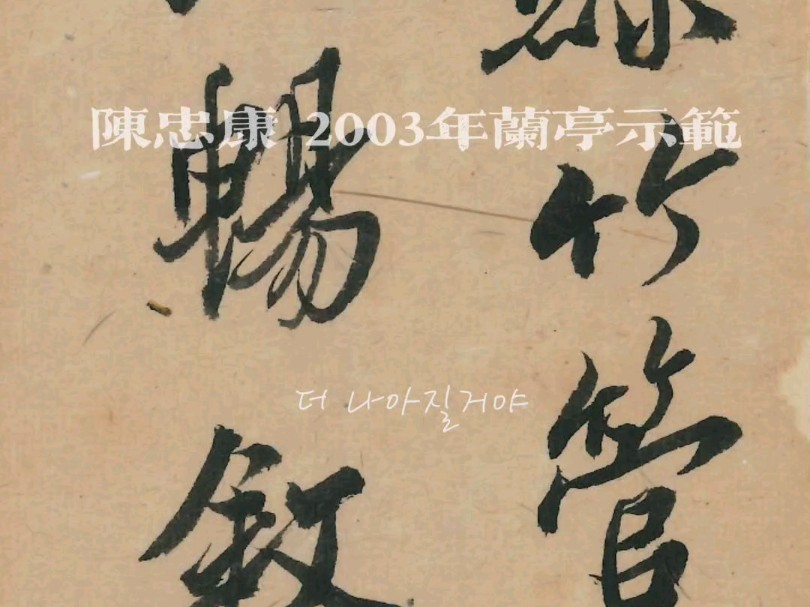 陳忠康 2003年蘭亭示範
絲竹管
暢敘
더 나아질거야